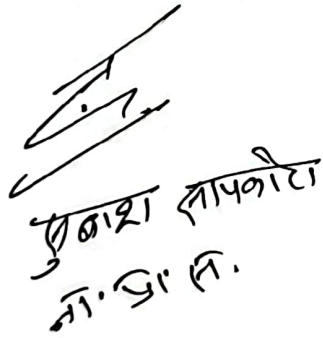 सुबाश सापकोटा
ना. प्रा. स.